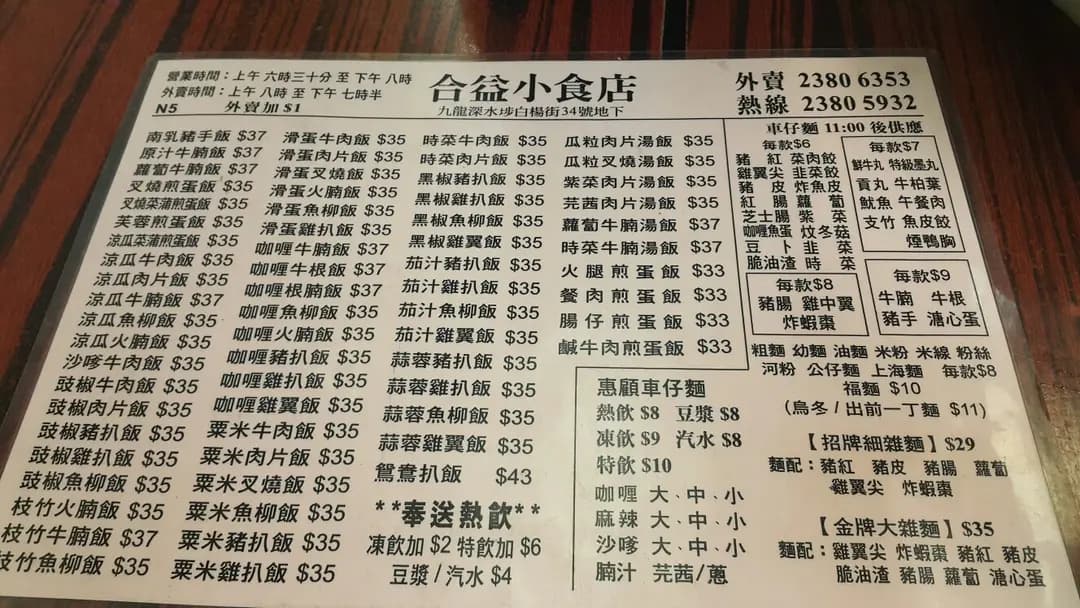 營業時間：上午 六時三十分 至 下午 八時
外賣時間：上午 八時 至 下午 七時半
N5 外賣加 $1
合益小食店
九龍深水埗白楊街34號地下
外賣 2380 6353
熱線 2380 5932
南乳豬手飯 $37
原汁牛腩飯 $37
蘿蔔牛腩飯 $37
叉燒煎蛋飯 $35
叉燒菜蒲煎蛋飯 $35
芙蓉煎蛋飯 $35
涼瓜菜蒲煎蛋飯 $35
涼瓜牛肉飯 $35
涼瓜肉片飯 $35
涼瓜牛腩飯 $37
涼瓜魚柳飯 $35
涼瓜火腩飯 $35
沙嗲牛肉飯 $35
豉椒牛肉飯 $35
豉椒肉片飯 $35
豉椒豬扒飯 $35
豉椒雞扒飯 $35
豉椒魚柳飯 $35
枝竹火腩飯 $35
枝竹牛腩飯 $37
枝竹魚柳飯 $35
滑蛋牛肉飯 $35
滑蛋肉片飯 $35
滑蛋叉燒飯 $35
滑蛋火腩飯 $35
滑蛋魚柳飯 $35
滑蛋雞扒飯 $35
咖喱牛腩飯 $37
咖喱牛根飯 $37
咖喱根腩飯 $37
咖喱魚柳飯 $35
咖喱火腩飯 $35
咖喱豬扒飯 $35
咖喱雞扒飯 $35
咖喱雞翼飯 $35
粟米牛肉飯 $35
粟米肉片飯 $35
粟米叉燒飯 $35
粟米魚柳飯 $35
粟米豬扒飯 $35
粟米雞扒飯 $35
時菜牛肉飯 $35
時菜肉片飯 $35
黑椒豬扒飯 $35
黑椒雞扒飯 $35
黑椒魚柳飯 $35
黑椒雞翼飯 $35
茄汁豬扒飯 $35
茄汁雞扒飯 $35
茄汁魚柳飯 $35
茄汁雞翼飯 $35
蒜蓉豬扒飯 $35
蒜蓉雞扒飯 $35
蒜蓉魚柳飯 $35
蒜蓉雞翼飯 $35
鴛鴦扒飯 $43
**奉送熱飲**
凍飲加 $2 特飲加 $6
豆漿 / 汽水 $4
瓜粒肉片湯飯 $35
瓜粒叉燒湯飯 $35
紫菜肉片湯飯 $35
芫茜肉片湯飯 $35
蘿蔔牛腩湯飯 $37
時菜牛腩湯飯 $37
火腿煎蛋飯 $33
餐肉煎蛋飯 $33
腸仔煎蛋飯 $33
鹹牛肉煎蛋飯 $33
惠顧車仔麵
熱飲 $8 豆漿 $8
凍飲 $9 汽水 $8
特飲 $10
咖喱 大、中、小
麻辣 大、中、小
沙嗲 大、中、小
腩汁 芫茜/蔥
車仔麵 11:00 後供應
每款$6
豬紅 菜肉餃
雞翼尖 韭菜餃
豬皮 炸魚皮
紅腸 蘿蔔
芝士腸 紫菜
咖喱魚蛋 炆冬菇
豆卜 韭菜
脆油渣 時菜
每款$7
鮮牛丸 特級墨丸
貢丸 牛柏葉
魷魚 午餐肉
支竹 魚皮餃
煙鴨胸
每款$8
豬腸 雞中翼
炸蝦棗
每款$9
牛腩 牛根
豬手 溏心蛋
粗麵 幼麵 油麵 米粉 米線 粉絲
河粉 公仔麵 上海麵 每款$8
福麵 $10
(烏冬 / 出前一丁麵 $11)
【招牌細雜麵】$29
麵配：豬紅 豬皮 豬腸 蘿蔔
雞翼尖 炸蝦棗
【金牌大雜麵】$35
麵配：雞翼尖 炸蝦棗 豬紅 豬皮
脆油渣 豬腸 蘿蔔 溏心蛋